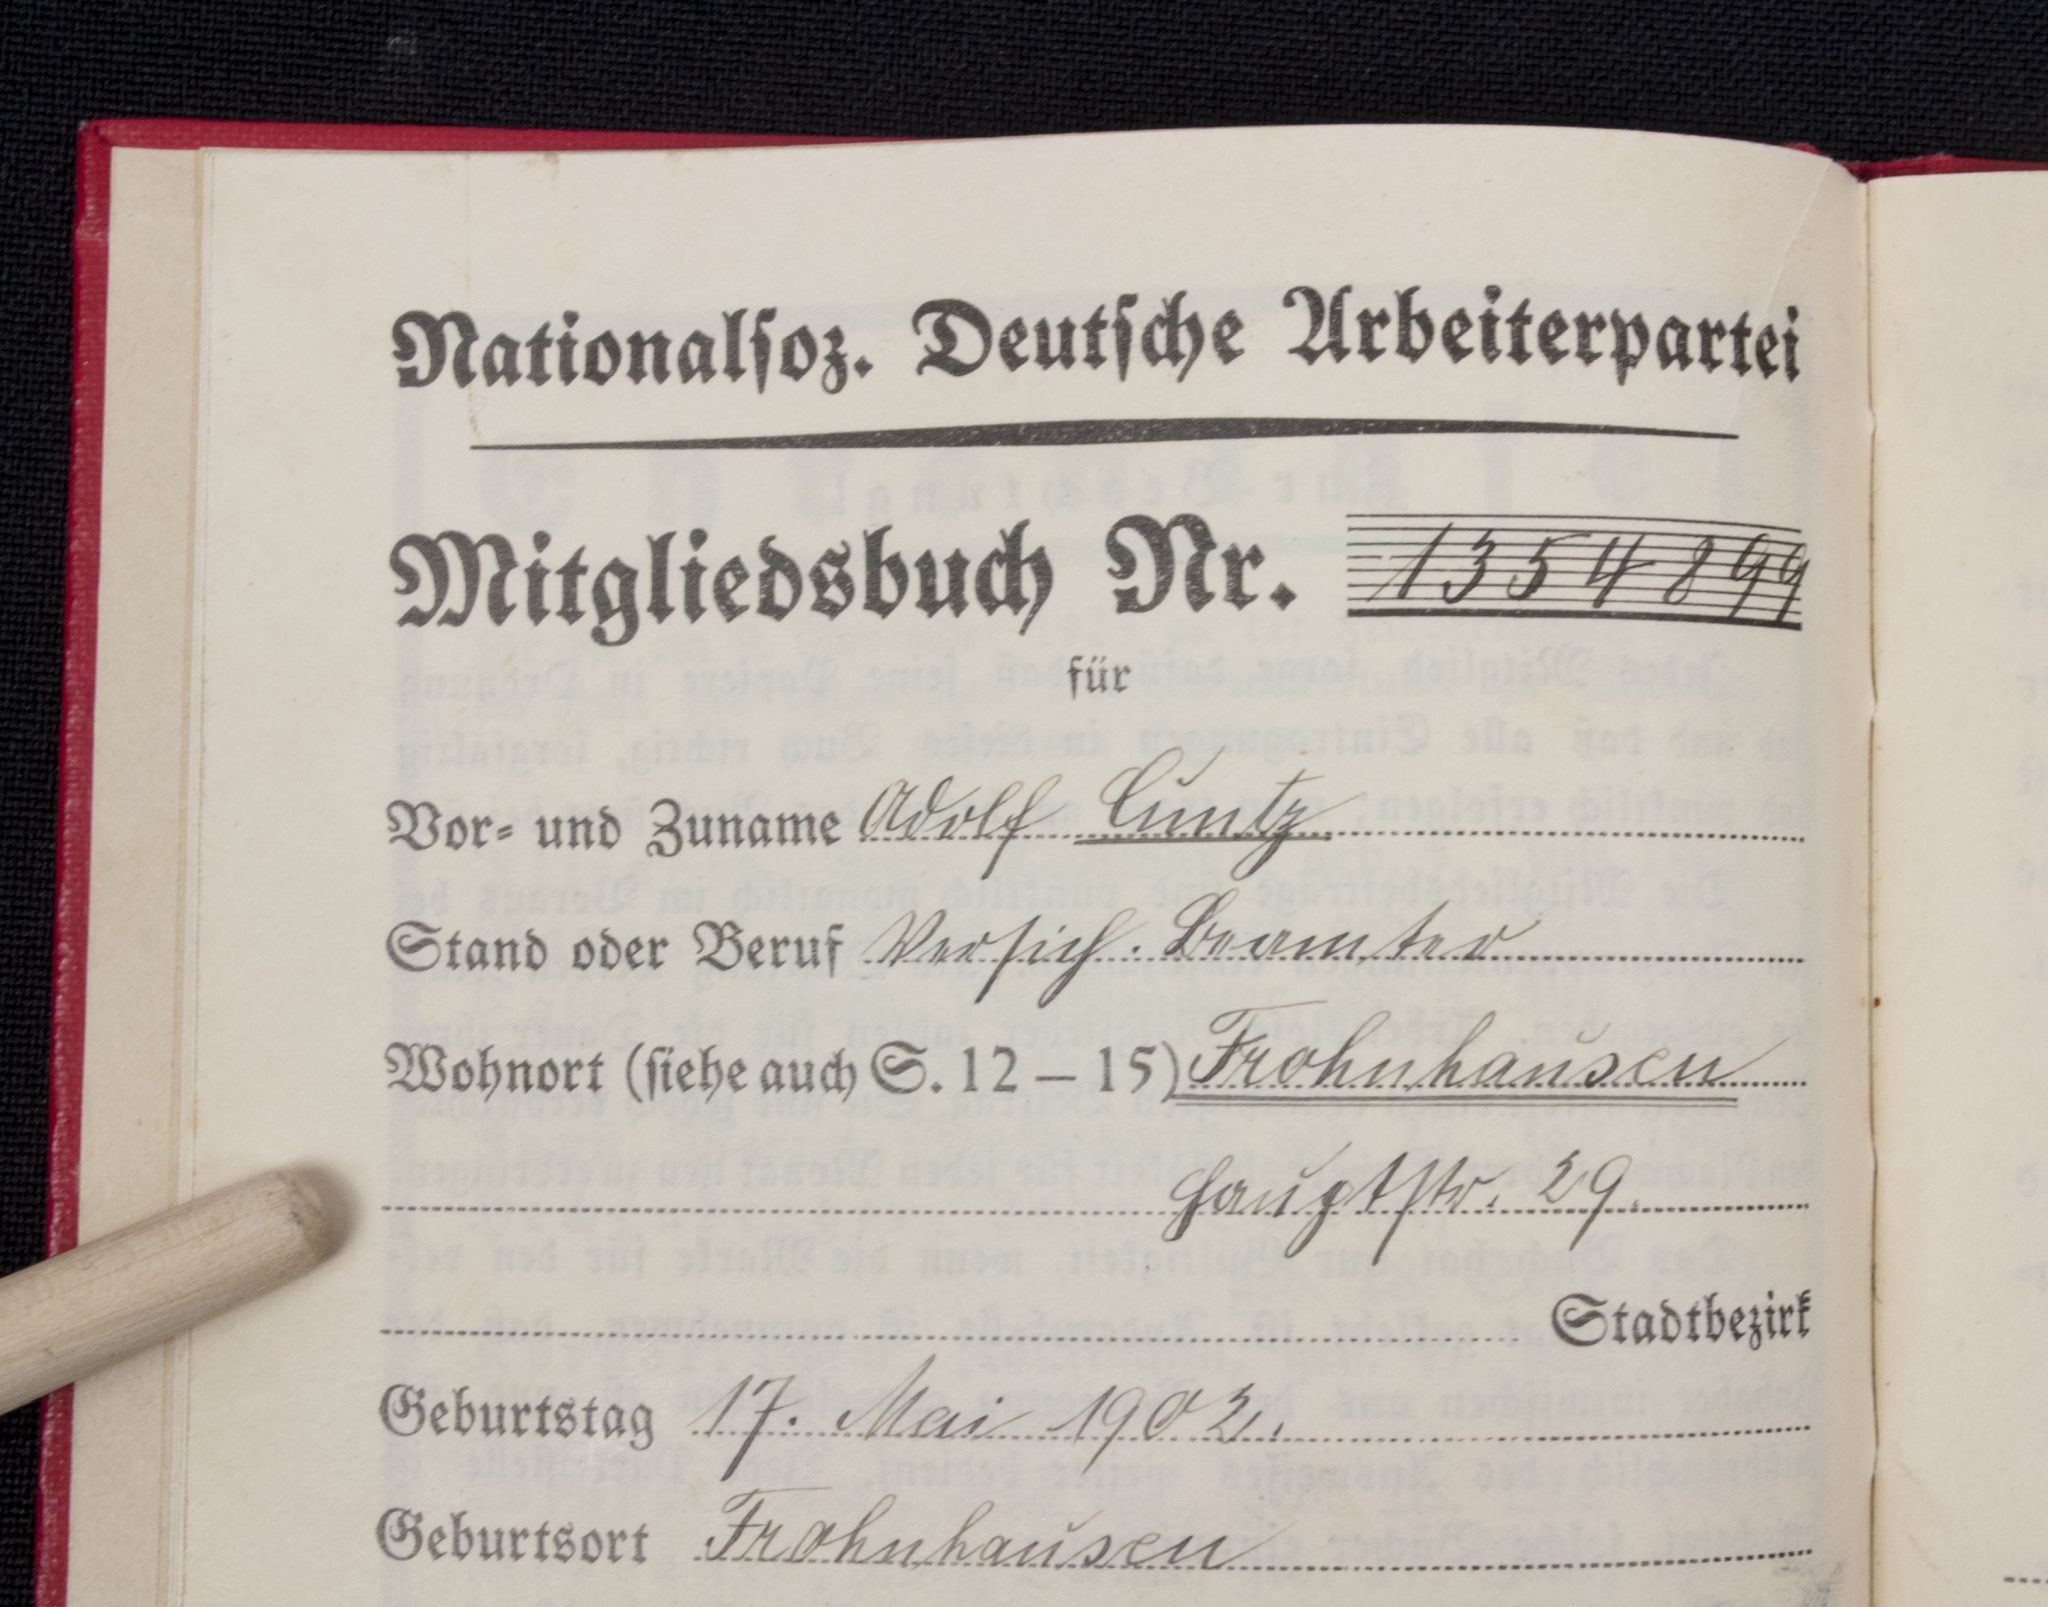 Nationalsoz. Deutsche Arbeiterpartei
Mitgliedsbuch Nr. 1354899
für
Vor- und Zuname Adolf Cuntz
Stand oder Beruf Versich. Beamter
Wohnort (siehe auch S. 12 – 15) Frohnhausen
Hauptstr. 29.
Stadtbezirk
Geburtstag 17. Mai 1902.
Geburtsort Frohnhausen